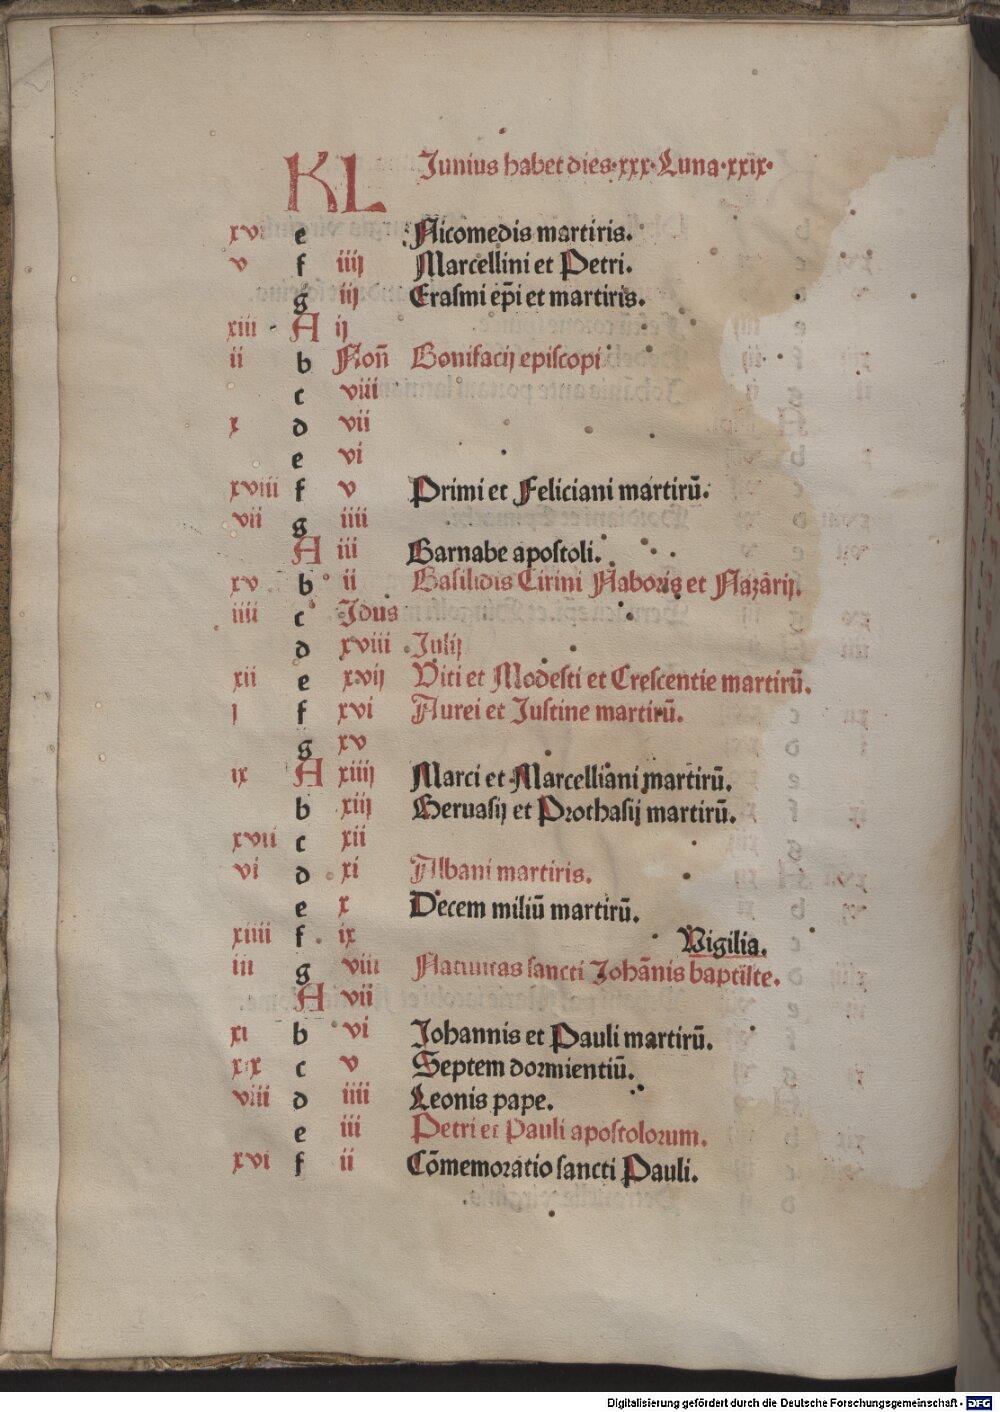 KL Junius habet dies·xxx·Luna·xxix·
xvi e Nicomedis martiris.
v f iiij Marcellini et Petri.
g iij Erasmi ep̄i et martiris.
xiii A ij
ii b Non̄ Bonifacij episcopi
c viii
x d vii
e vi
xviii f v Primi et Feliciani martirū.
vii g iiii
A iii Barnabe apostoli.
xv b ii Basilidis Cirini Naboris et Nazārij.
iiii c Idus
d xviii Julij
xii e xvij Viti et Modesti et Crescentie martirū.
j f xvi Aurei et Justine martirū.
g xv
ix A xiiij Marci et Marcelliani martirū.
b xiij Geruasij et Prothasij martirū.
xvii c xii
vi d xi Albani martiris.
e x Decem miliū martirū.
xiiii f ix Vigilia.
iii g viii Natiuitas sancti Johān̄is baptiste.
A vii
xi b vi Johannis et Pauli martirū.
xix c v Septem dormientiū.
viii d iiii Leonis pape.
e iii Petri et Pauli apostolorum.
xvi f ii Cōmemoratio sancti Pauli.
Digitalisierung gefördert durch die Deutsche Forschungsgemeinschaft - DFG